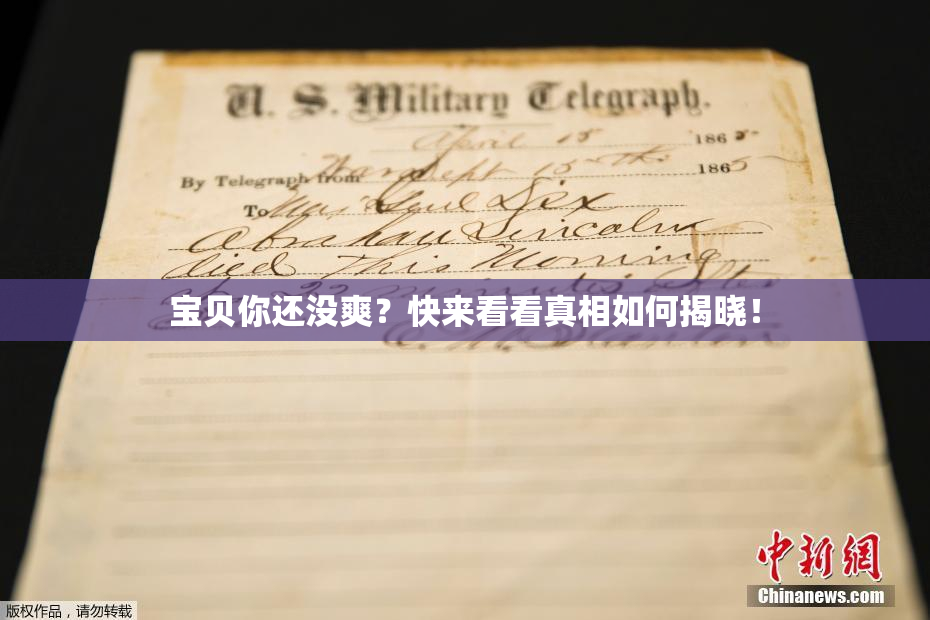 U. S. Military Telegraph.
April 15 1865
By Telegraph from War Dept 15th 1865
To Maj Genl Dix
Abraham Lincoln
died This Morning
at 22 minutes after
宝贝你还没爽？快来看看真相如何揭晓！
E. M. Stanton
中新網
Chinanews.com
版权作品，请勿转载